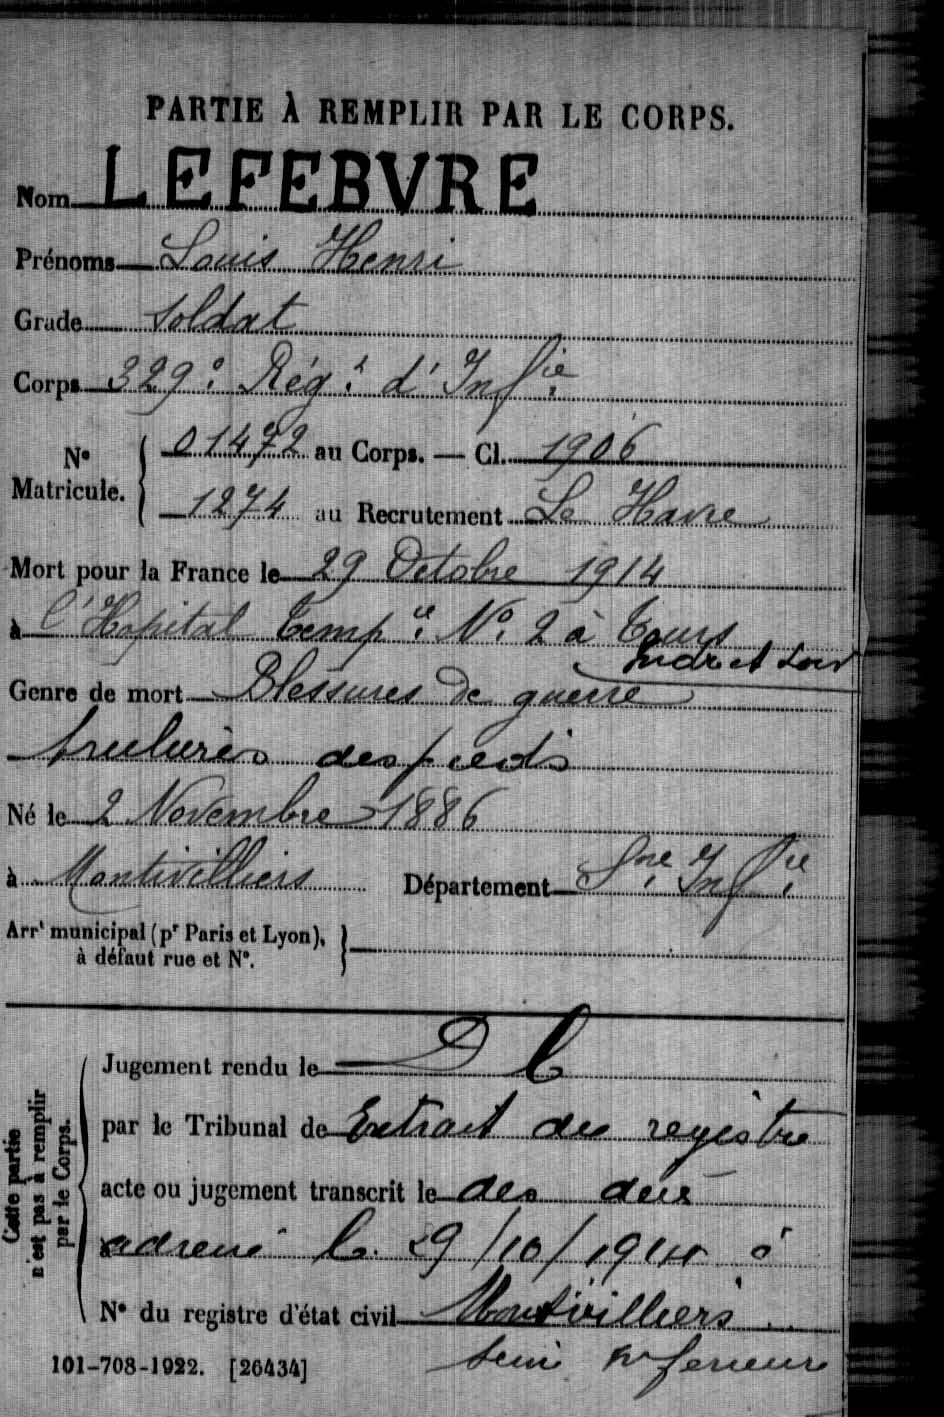 PARTIE À REMPLIR PAR LE CORPS.
Nom LEFEBVRE
Prénoms Louis Henri
Grade Soldat
Corps 329e Régt d'Infie
N° Matricule. 01472 au Corps. — Cl. 1906
1274 au Recrutement Le Havre
Mort pour la France le 29 Octobre 1914
à l'Hopital Tempre No 2 à Tours
Indre et Loir
Genre de mort Blessures de guerre
des pieds
Né le 2 Novembre 1886
à Montivilliers Département Sne Infre
Arrt municipal (pr Paris et Lyon), à défaut rue et N°.
Cette partie n'est pas à remplir par le Corps.
Jugement rendu le D C
par le Tribunal de Extrait du registre
acte ou jugement transcrit le des
le 29/10/1914 à
N° du registre d'état civil Montivilliers
101-708-1922. [26434] Seine Inferieure